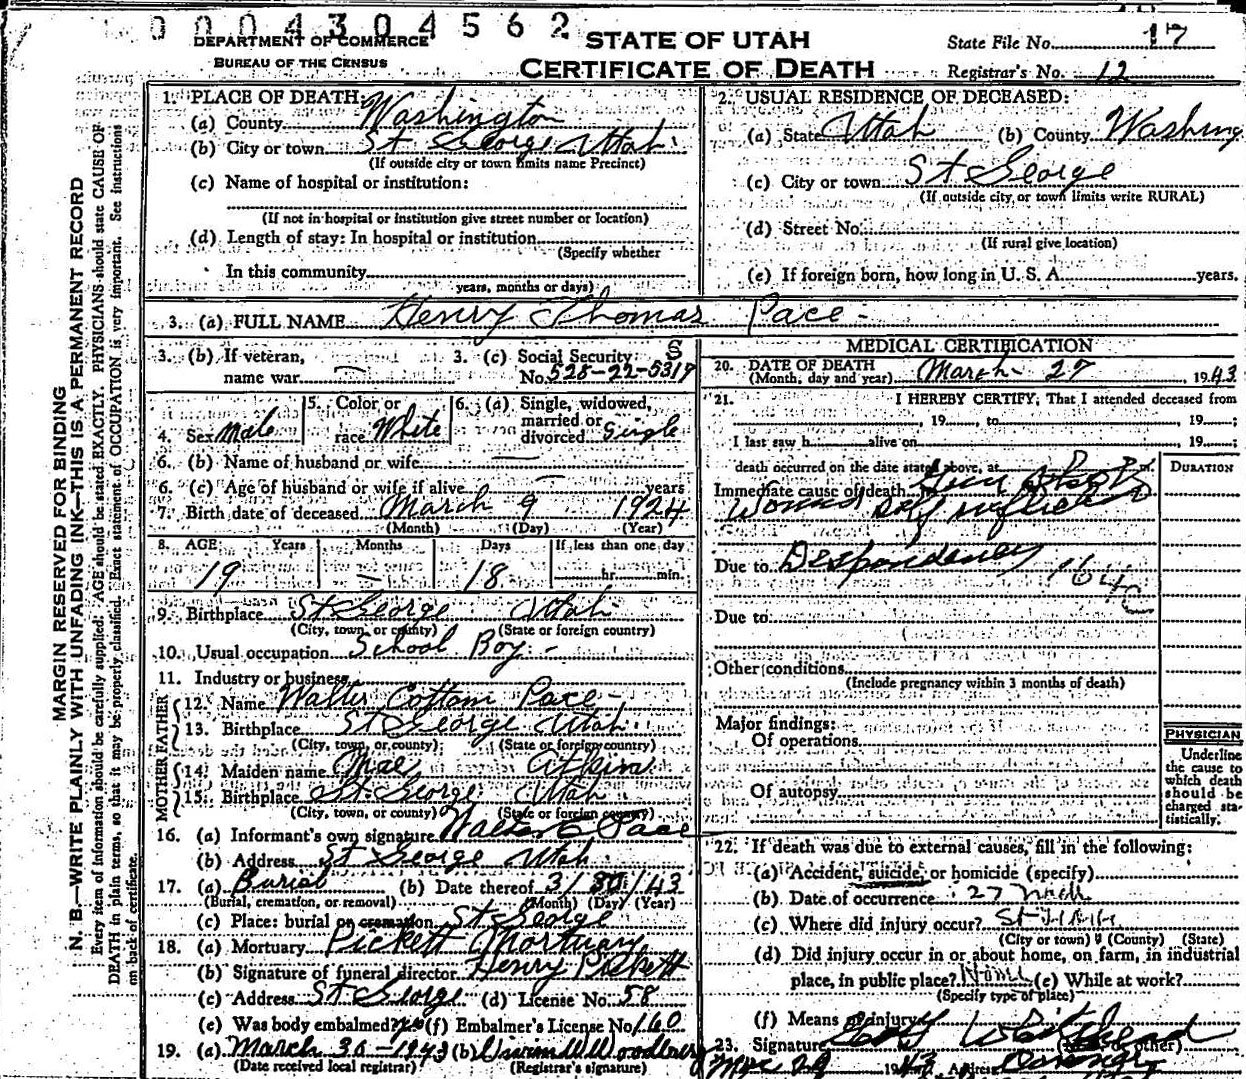 0004304562
DEPARTMENT OF COMMERCE
BUREAU OF THE CENSUS
STATE OF UTAH
CERTIFICATE OF DEATH
State File No. 17
Registrar's No. 12
MARGIN RESERVED FOR BINDING
N. B.—WRITE PLAINLY WITH UNFADING INK—THIS IS A PERMANENT RECORD
Every item of information should be carefully supplied. AGE should be stated EXACTLY. PHYSICIANS should state CAUSE OF
DEATH in plain terms, so that it may be properly classified. Exact statement of OCCUPATION is very important. See instructions
on back of certificate.
1. PLACE OF DEATH:
(a) County Washington
(b) City or town St George Utah
(If outside city or town limits name Precinct)
(c) Name of hospital or institution:
(If not in hospital or institution give street number or location)
(d) Length of stay: In hospital or institution
(Specify whether
In this community
years, months or days)
2. USUAL RESIDENCE OF DECEASED:
(a) State Utah (b) County Washing
(c) City or town St George
(If outside city or town limits write RURAL)
(d) Street No.
(If rural give location)
(e) If foreign born, how long in U. S. A. years.
3. (a) FULL NAME Henry Thomas Pace
3. (b) If veteran,
name war
3. (c) Social Security
No. 528-22-5317
4. Sex Male
5. Color or
race White
6. (a) Single, widowed,
married or
divorced Single
6. (b) Name of husband or wife
6. (c) Age of husband or wife if alive years
7. Birth date of deceased March 9 1924
(Month) (Day) (Year)
8. AGE Years Months Days If less than one day
19 — 18 hr. min.
9. Birthplace St George Utah
(City, town, or county) (State or foreign country)
10. Usual occupation School Boy
11. Industry or business
FATHER
12. Name Walter Cottam Pace
13. Birthplace St George Utah
(City, town, or county) (State or foreign country)
MOTHER
14. Maiden name Mae Atkin
15. Birthplace St George Utah
(City, town, or county) (State or foreign country)
16. (a) Informant's own signature Walter C Pace
(b) Address St George Utah
17. (a) Burial (b) Date thereof 3/30/43
(Burial, cremation, or removal) (Month) (Day) (Year)
(c) Place: burial or cremation St George
18. (a) Mortuary Pickett Mortuary
(b) Signature of funeral director Henry Pickett
(c) Address St George (d) License No. 58
(e) Was body embalmed? (f) Embalmer's License No. 160
19. (a) March 30-1943 (b)
(Date received local registrar) (Registrar's signature)
MEDICAL CERTIFICATION
20. DATE OF DEATH
(Month, day and year) March 27, 1943
21. I HEREBY CERTIFY, That I attended deceased from
, 19 , to , 19 ;
I last saw h alive on , 19 ;
death occurred on the date stated above, at m.
DURATION
Immediate cause of death Gun Shot
wound self inflicted
Due to Despondency 164c
Due to
Other conditions
(Include pregnancy within 3 months of death)
Major findings:
Of operations
Of autopsy
PHYSICIAN
Underline
the cause to
which death
should be
charged sta-
tistically.
22. If death was due to external causes, fill in the following:
(a) Accident, suicide, or homicide (specify)
(b) Date of occurrence 27 March
(c) Where did injury occur?
(City or town) (County) (State)
(d) Did injury occur in or about home, on farm, in industrial
place, in public place? Home (e) While at work?
(Specify type of place)
(f) Means of injury
23. Signature Whitehead